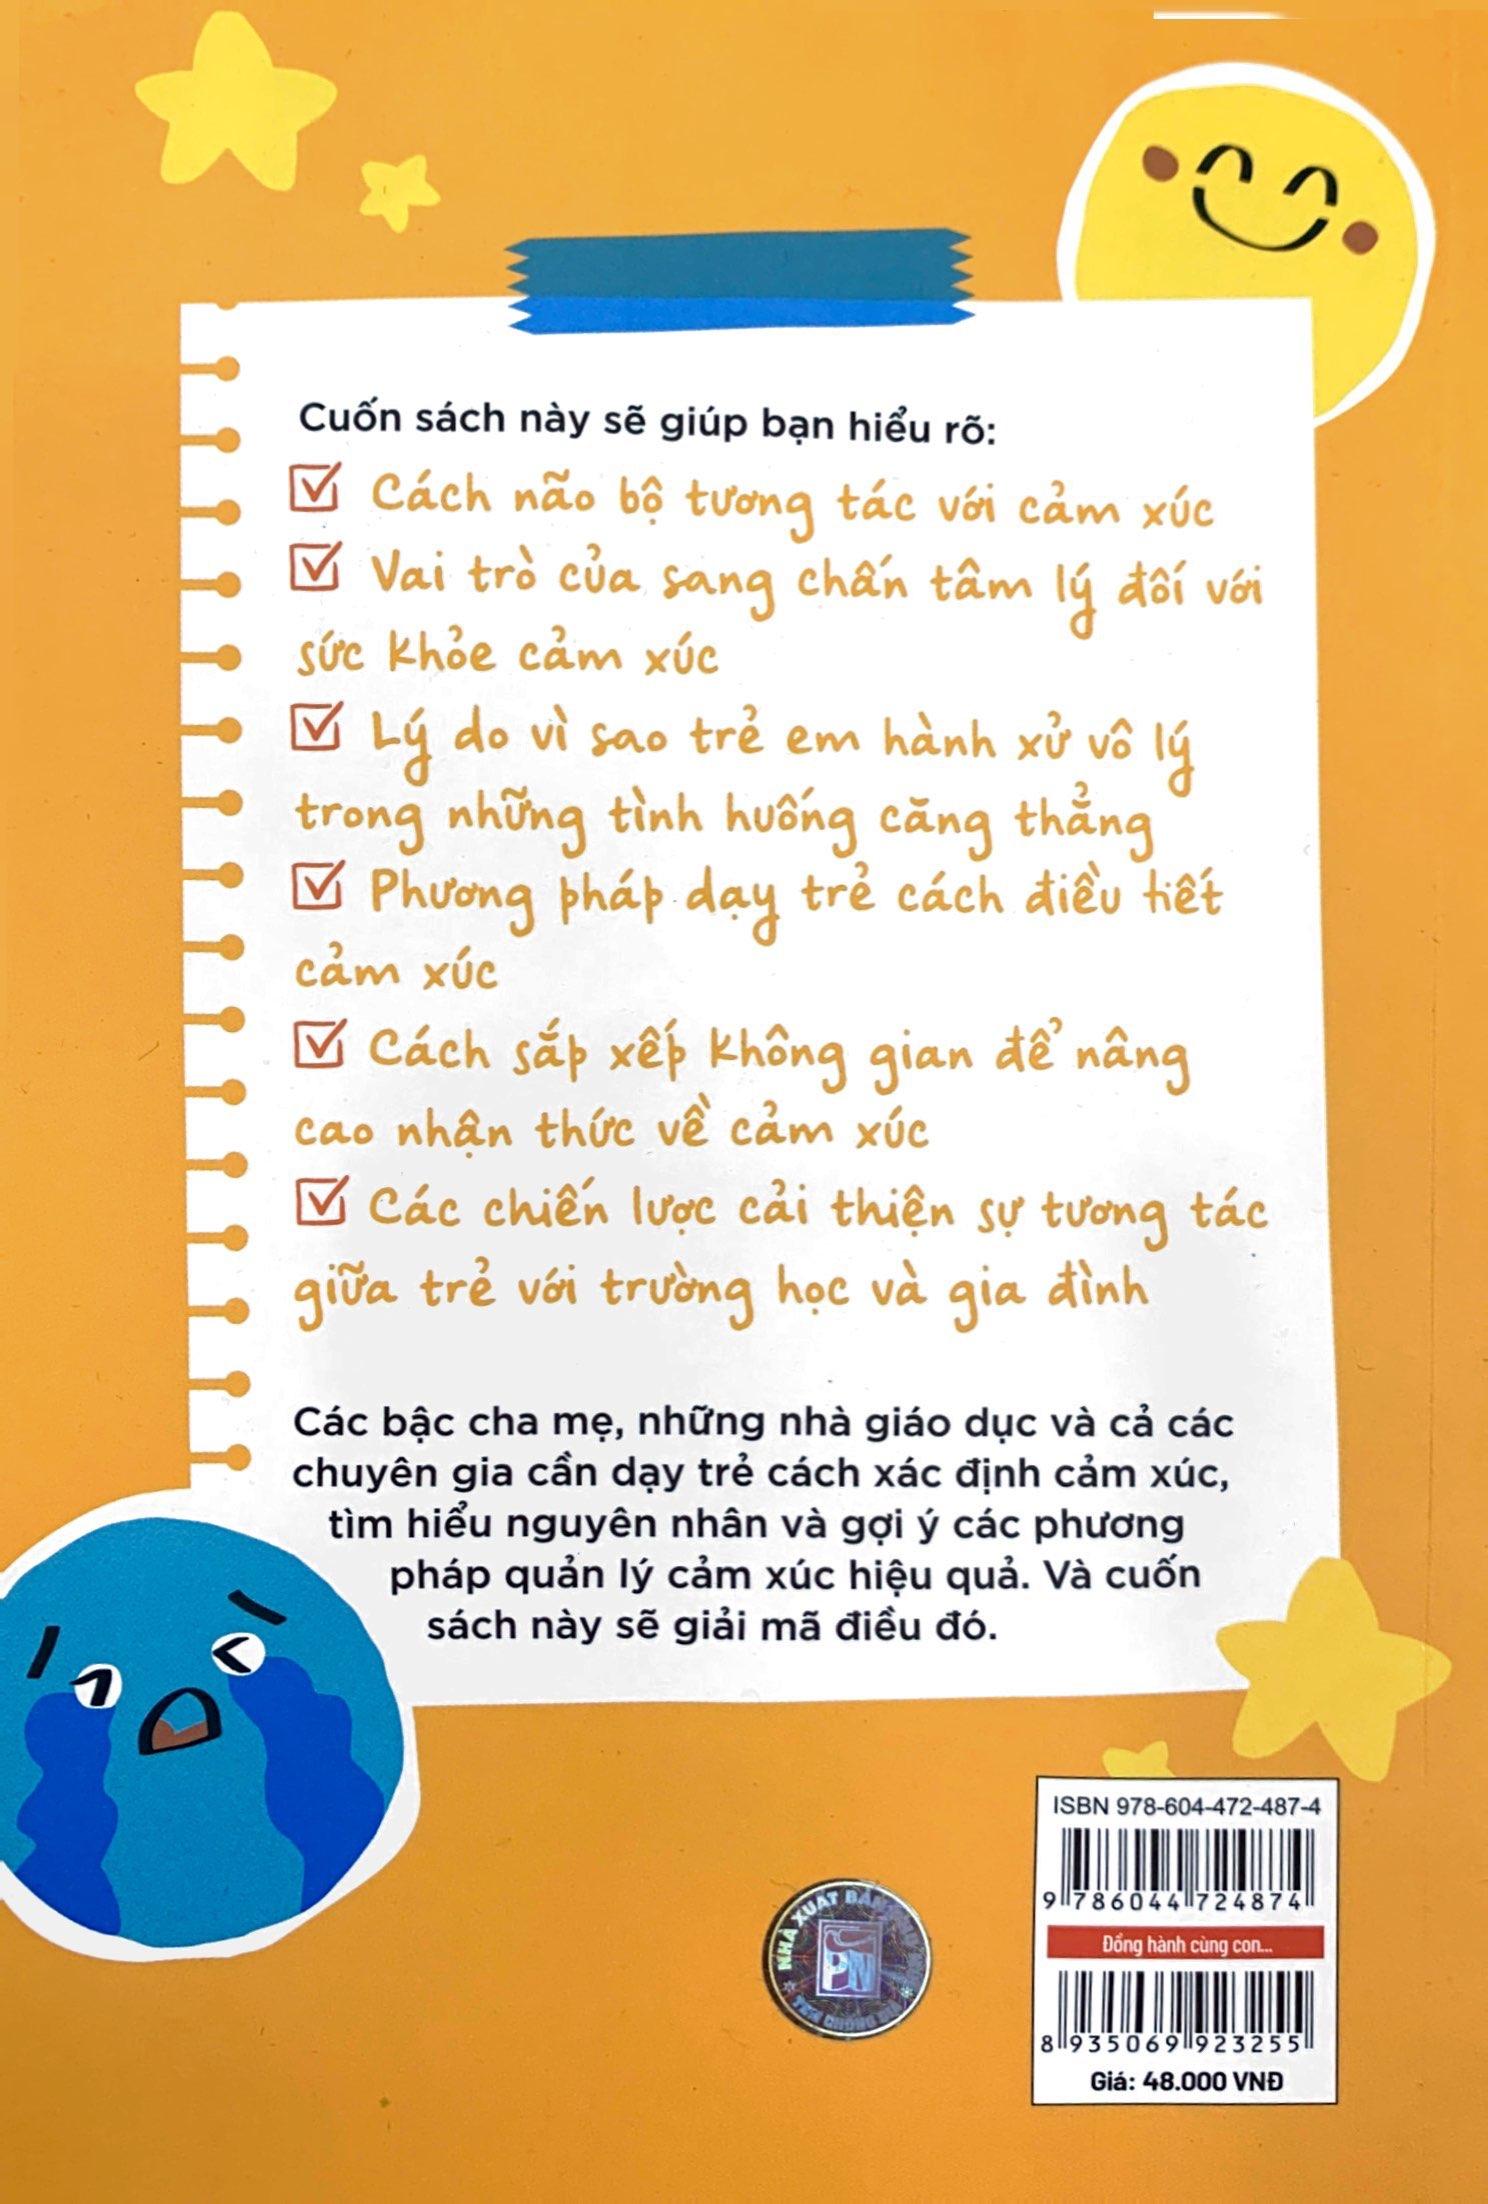 Cuốn sách này sẽ giúp bạn hiểu rõ:
Cách não bộ tương tác với cảm xúc
Vai trò của sang chấn tâm lý đối với
sức khỏe cảm xúc
Lý do vì sao trẻ em hành xử vô lý
trong những tình huống căng thẳng
Phương pháp dạy trẻ cách điều tiết
cảm xúc
Cách sắp xếp không gian để nâng
cao nhận thức về cảm xúc
Các chiến lược cải thiện sự tương tác
giữa trẻ với trường học và gia đình
Các bậc cha mẹ, những nhà giáo dục và cả các
chuyên gia cần dạy trẻ cách xác định cảm xúc,
tìm hiểu nguyên nhân và gợi ý các phương
pháp quản lý cảm xúc hiệu quả. Và cuốn
sách này sẽ giải mã điều đó.
ISBN 978-604-472-487-4
9 786044 724874
Đồng hành cùng con...
8 935069 923255
Giá: 48.000 VNĐ
NHÀ XUẤT BẢN
PN
TEM CHỐNG